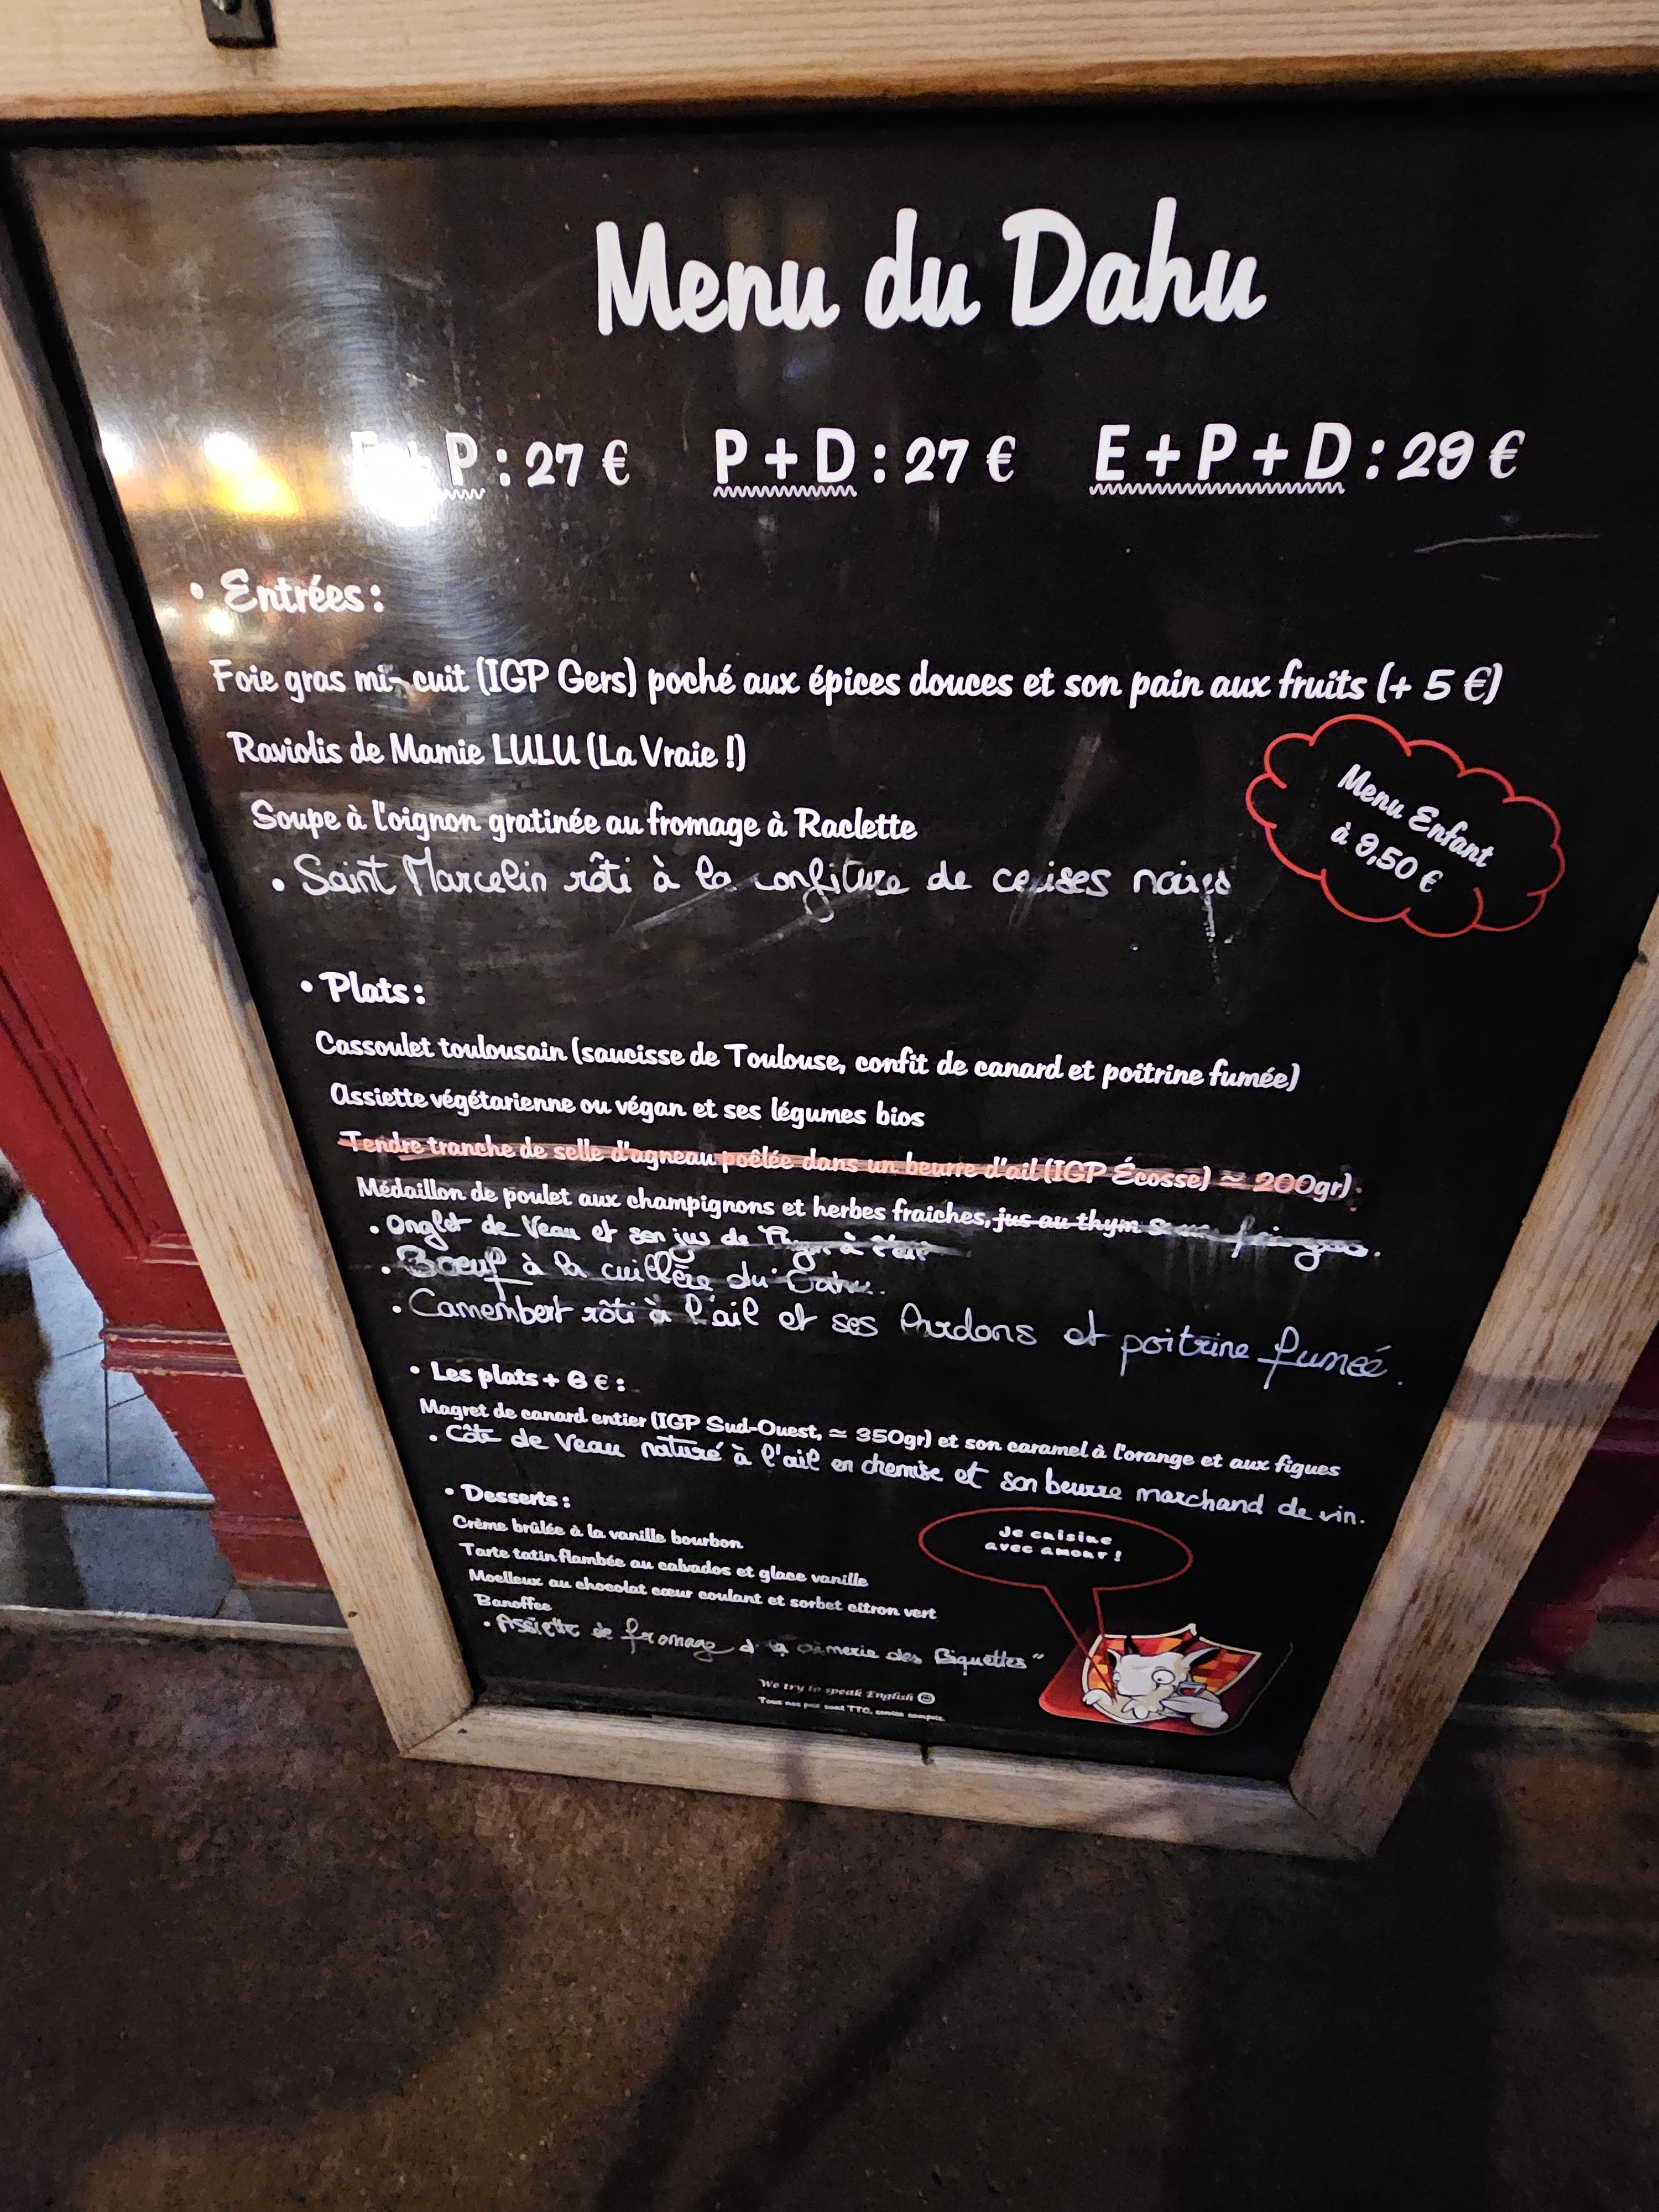 Menu du Dahu
E + P : 27 € P + D : 27 € E + P + D : 29 €
• Entrées :
Foie gras mi-cuit (IGP Gers) poché aux épices douces et son pain aux fruits (+ 5 €)
Raviolis de Mamie LULU (La Vraie !)
Soupe à l'oignon gratinée au fromage à Raclette
• Saint Marcelin rôti à la confiture de cerises noires
Menu Enfant
à 9,50 €
• Plats :
Cassoulet toulousain (saucisse de Toulouse, confit de canard et poitrine fumée)
Assiette végétarienne ou végan et ses légumes bios
Tendre tranche de selle d'agneau poêlée dans un beurre d'ail (IGP Écosse) ≃ 200gr)
Médaillon de poulet aux champignons et herbes fraiches, jus au thym
• Onglet de Veau et son jus de Thym à l'ail
• Boeuf à la cuillère du Dahu.
• Camembert rôti à l'ail et ses lardons et poitrine fumeé.
• Les plats + 6 € :
Magret de canard entier (IGP Sud-Ouest, ≃ 350gr) et son caramel à l'orange et aux figues
• Côte de Veau naturé à l'ail en chemise et son beurre marchand de vin.
• Desserts :
Crème brûlée à la vanille bourbon
Tarte tatin flambée au calvados et glace vanille
Moelleux au chocolat cœur coulant et sorbet citron vert
Banoffee
• Assiette de fromage des Biquettes"
Je cuisine
avec amour !
We try to speak English
Tous nos prix sont TTC, service compris.